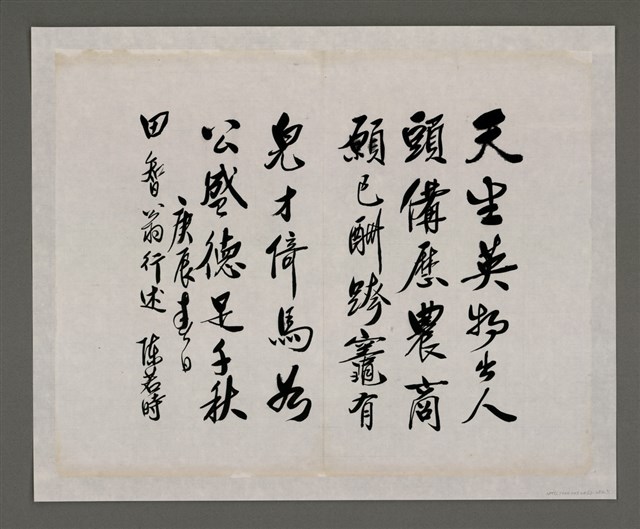 天生英物出人
頭備歷農商
願已酬跨竈有
兒才倚馬如
公盛德足千秋
庚辰春日
田智翁行述 陳若時